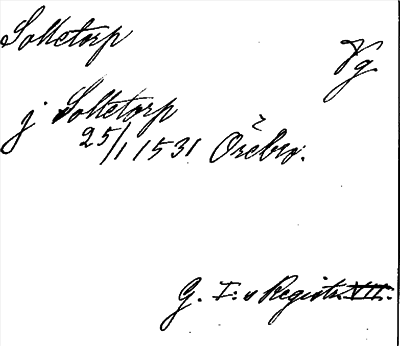 Solletorp
Vg
j Solletorp
25/1 1531 Örebro.
G. I:s Registr. VII.